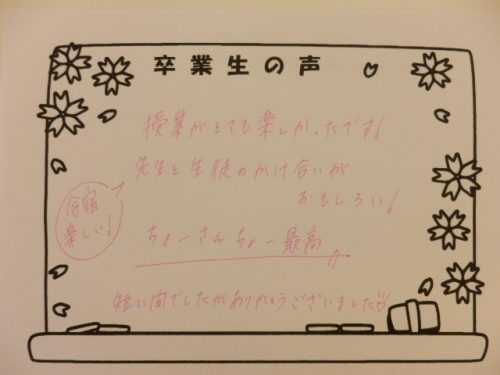 卒業生の声
授業がとても楽しかったです!
先生と生徒のかけ合いが
おもしろい!
合宿
楽しい!
ちょーさんちょー最高
短い間でしたがありがとうございました